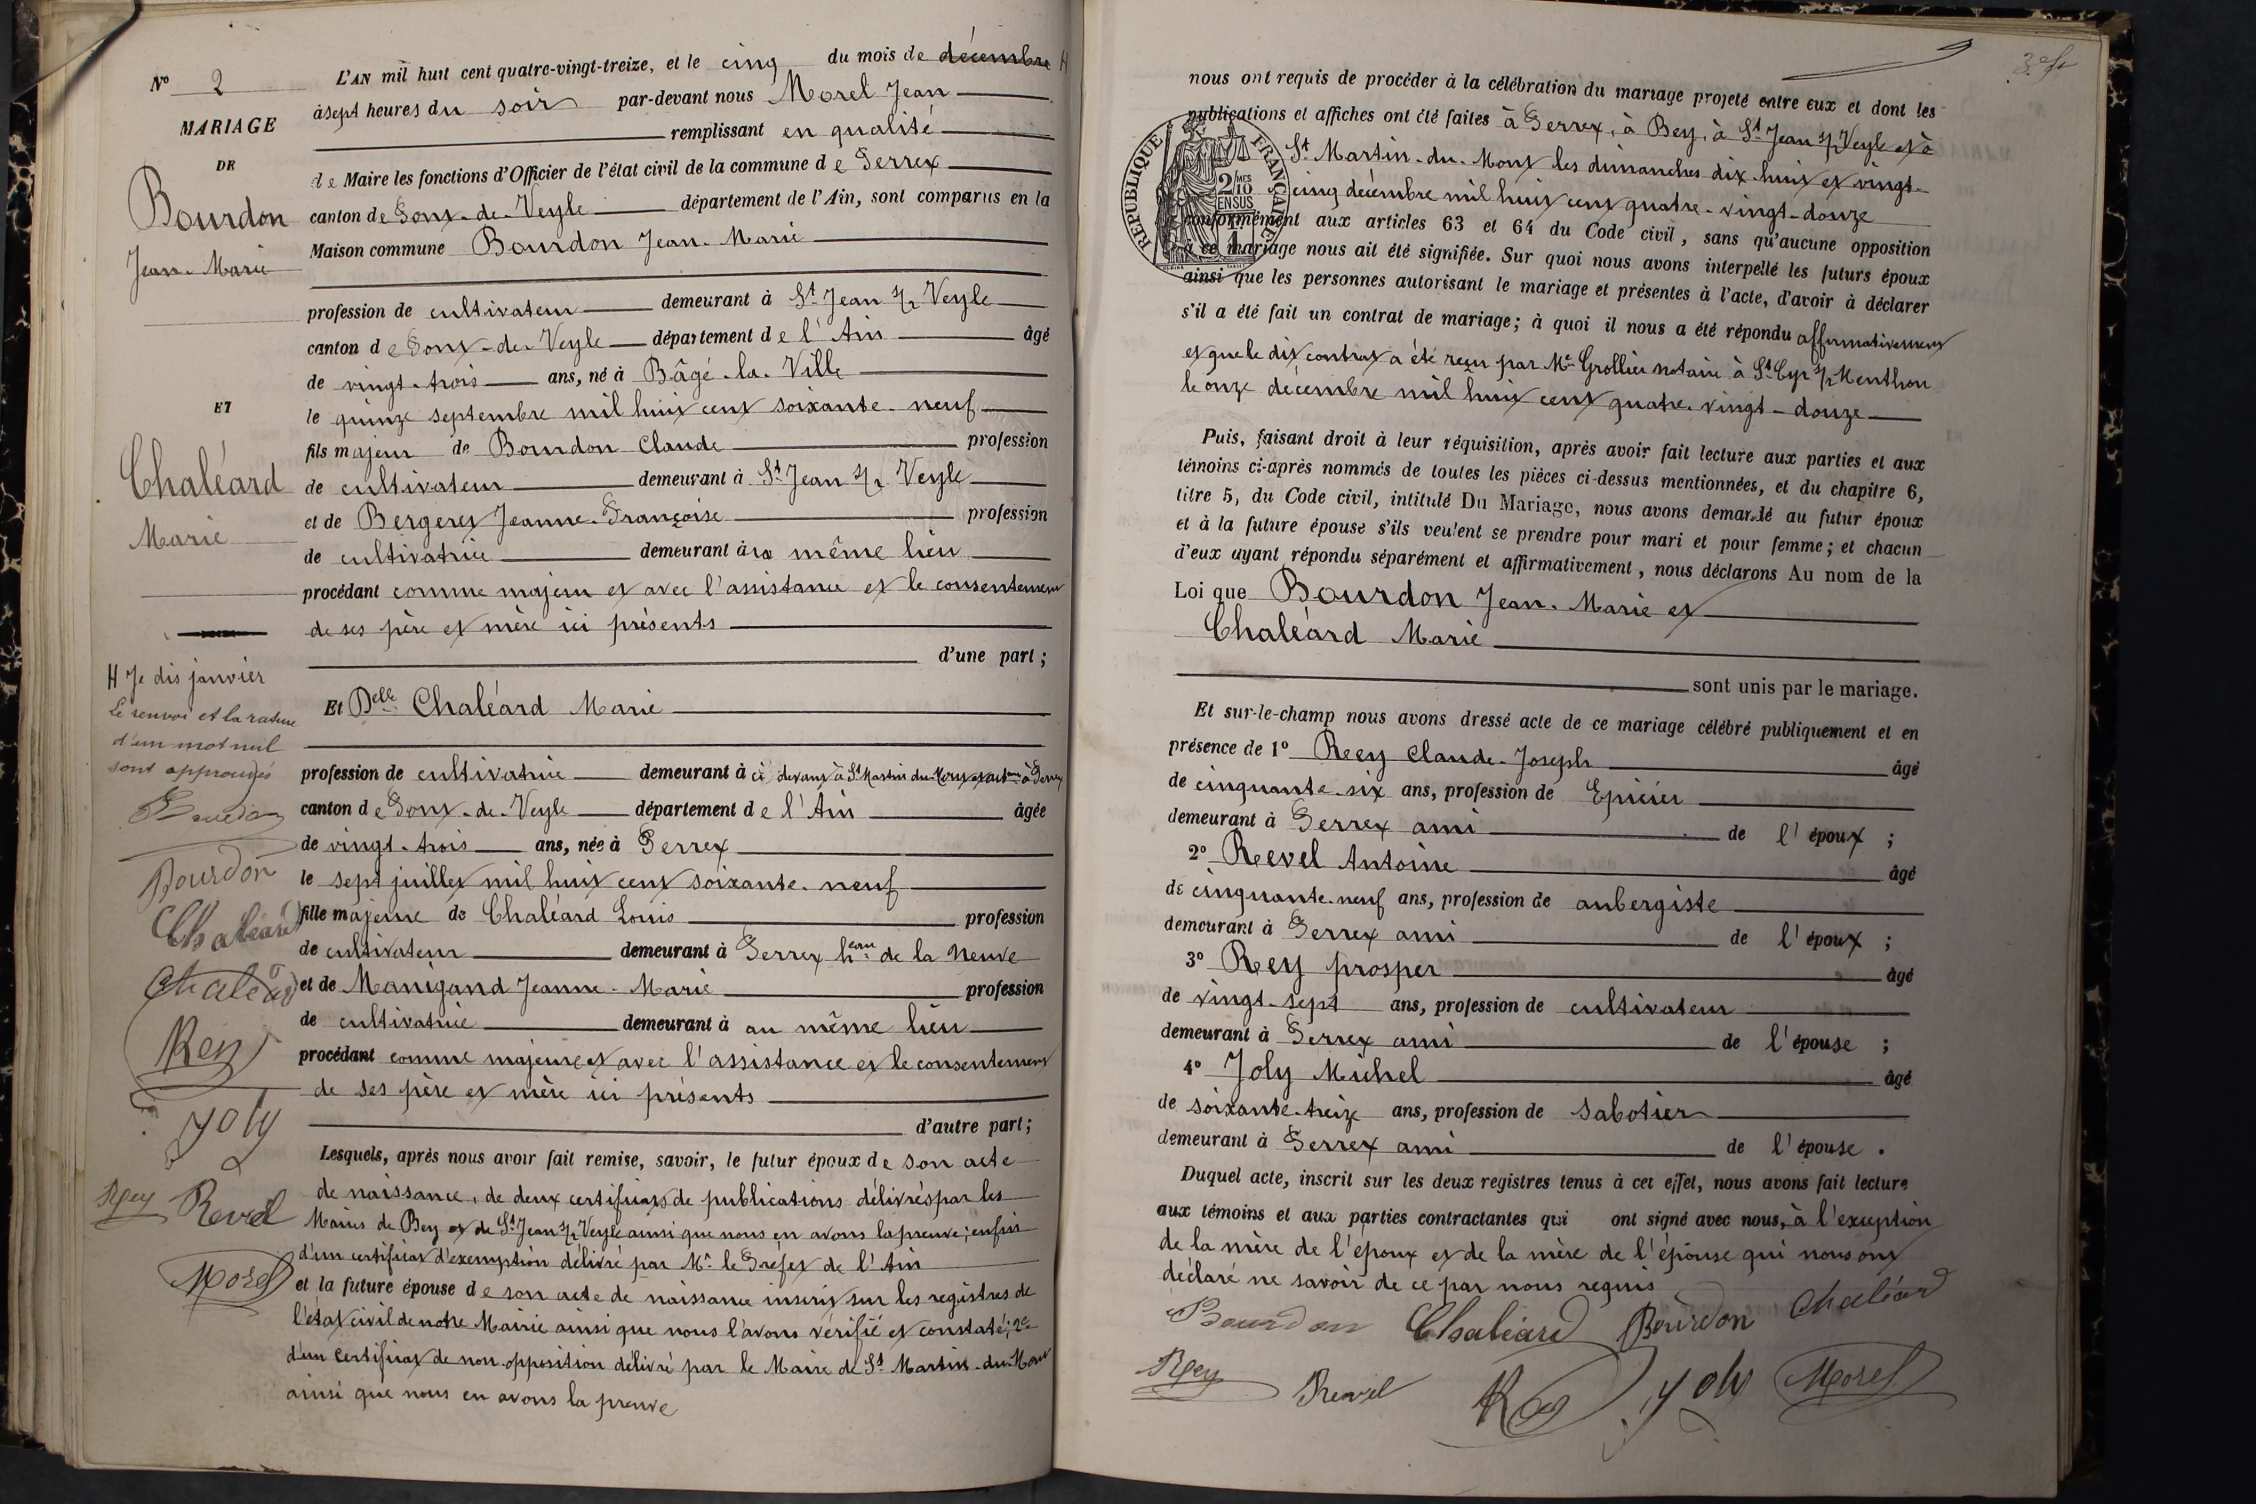 N° 2
MARIAGE
DE
Bourdon
Jean-Marie
ET
Chaléard
Marie
H Je dis janvier
Le renvoi et la rature
d'un mot nul
sont approuvés
Bourdon
Bourdon
Chaléard
Chaléard
Rey
Joly
Rey Revel
Morel
L'AN mil huit cent quatre-vingt-treize, et le cinq du mois de décembre H
à sept heures du soir par-devant nous Morel Jean
remplissant en qualité
de Maire les fonctions d'Officier de l'état civil de la commune de Perrex
canton de Pont-de-Veyle département de l'Ain, sont comparus en la
Maison commune Bourdon Jean-Marie
profession de cultivateur demeurant à St Jean s/r Veyle
canton de Pont-de-Veyle département de l'Ain âgé
de vingt-trois ans, né à Bâgé-la-Ville
le quinze septembre mil huit cent soixante-neuf
fils majeur de Bourdon Claude profession
de cultivateur demeurant à St Jean s/r Veyle
et de Bergeret Jeanne-Françoise profession
de cultivatrice demeurant à au même lieu
procédant comme majeur et avec l'assistance et le consentement
de ses père et mère ici présents
d'une part;
Et Delle Chaléard Marie
profession de cultivatrice demeurant à ci devant à St Martin du Mont et actt à Perrex
canton de Pont-de-Veyle département de l'Ain âgée
de vingt-trois ans, née à Perrex
le sept juillet mil huit cent soixante-neuf
fille majeure de Chaléard Louis profession
de cultivateur demeurant à Perrex heau de la Neuve
et de Manigand Jeanne-Marie profession
de cultivatrice demeurant à au même lieu
procédant comme majeure et avec l'assistance et le consentement
de ses père et mère ici présents
d'autre part;
Lesquels, après nous avoir fait remise, savoir, le futur époux de son acte
de naissance, de deux certificats de publications délivrés par les
Maires de Bey et de St Jean s/r Veyle ainsi que nous en avons la preuve; enfin
d'un certificat d'exemption délivré par Mr le Préfet de l'Ain
et la future épouse de son acte de naissance inscrit sur les registres de
l'état civil de notre Mairie ainsi que nous l'avons vérifié et constaté; 2°
d'un certificat de non-opposition délivré par le Maire de St Martin-du-Mont
ainsi que nous en avons la preuve
nous ont requis de procéder à la célébration du mariage projeté entre eux et dont les
publications et affiches ont été faites à Perrex, à Bey, à St Jean s/r Veyle et à
St Martin-du-Mont les dimanches dix-huit et vingt-
cinq décembre mil huit cent quatre-vingt-douze
conformément aux articles 63 et 64 du Code civil, sans qu'aucune opposition
à ce mariage nous ait été signifiée. Sur quoi nous avons interpellé les futurs époux
ainsi que les personnes autorisant le mariage et présentes à l'acte, d'avoir à déclarer
s'il a été fait un contrat de mariage; à quoi il nous a été répondu affirmativement
et que le dit contrat a été reçu par Me Grollier notaire à St Cyr s/r Menthon
le onze décembre mil huit cent quatre-vingt-douze
RÉPUBLIQUE FRANÇAISE
2/10 MES
EN SUS
Puis, faisant droit à leur réquisition, après avoir fait lecture aux parties et aux
témoins ci-après nommés de toutes les pièces ci-dessus mentionnées, et du chapitre 6,
titre 5, du Code civil, intitulé Du Mariage, nous avons demandé au futur époux
et à la future épouse s'ils veulent se prendre pour mari et pour femme; et chacun
d'eux ayant répondu séparément et affirmativement, nous déclarons Au nom de la
Loi que Bourdon Jean-Marie et
Chaléard Marie
sont unis par le mariage.
Et sur-le-champ nous avons dressé acte de ce mariage célébré publiquement et en
présence de 1° Rey Claude-Joseph âgé
de cinquante-six ans, profession de Epicier
demeurant à Perrex ami de l'époux;
2° Revel Antoine âgé
de cinquante-neuf ans, profession de aubergiste
demeurant à Perrex ami de l'époux;
3° Rey prosper âgé
de vingt-sept ans, profession de cultivateur
demeurant à Perrex ami de l'épouse;
4° Joly Michel âgé
de soixante-treize ans, profession de sabotier
demeurant à Perrex ami de l'épouse.
Duquel acte, inscrit sur les deux registres tenus à cet effet, nous avons fait lecture
aux témoins et aux parties contractantes qui ont signé avec nous, à l'exception
de la mère de l'époux et de la mère de l'épouse qui nous ont
déclaré ne savoir de ce par nous requis
Bourdon Chaléard Bourdon Chaléard
Rey Revel Rey Joly Morel